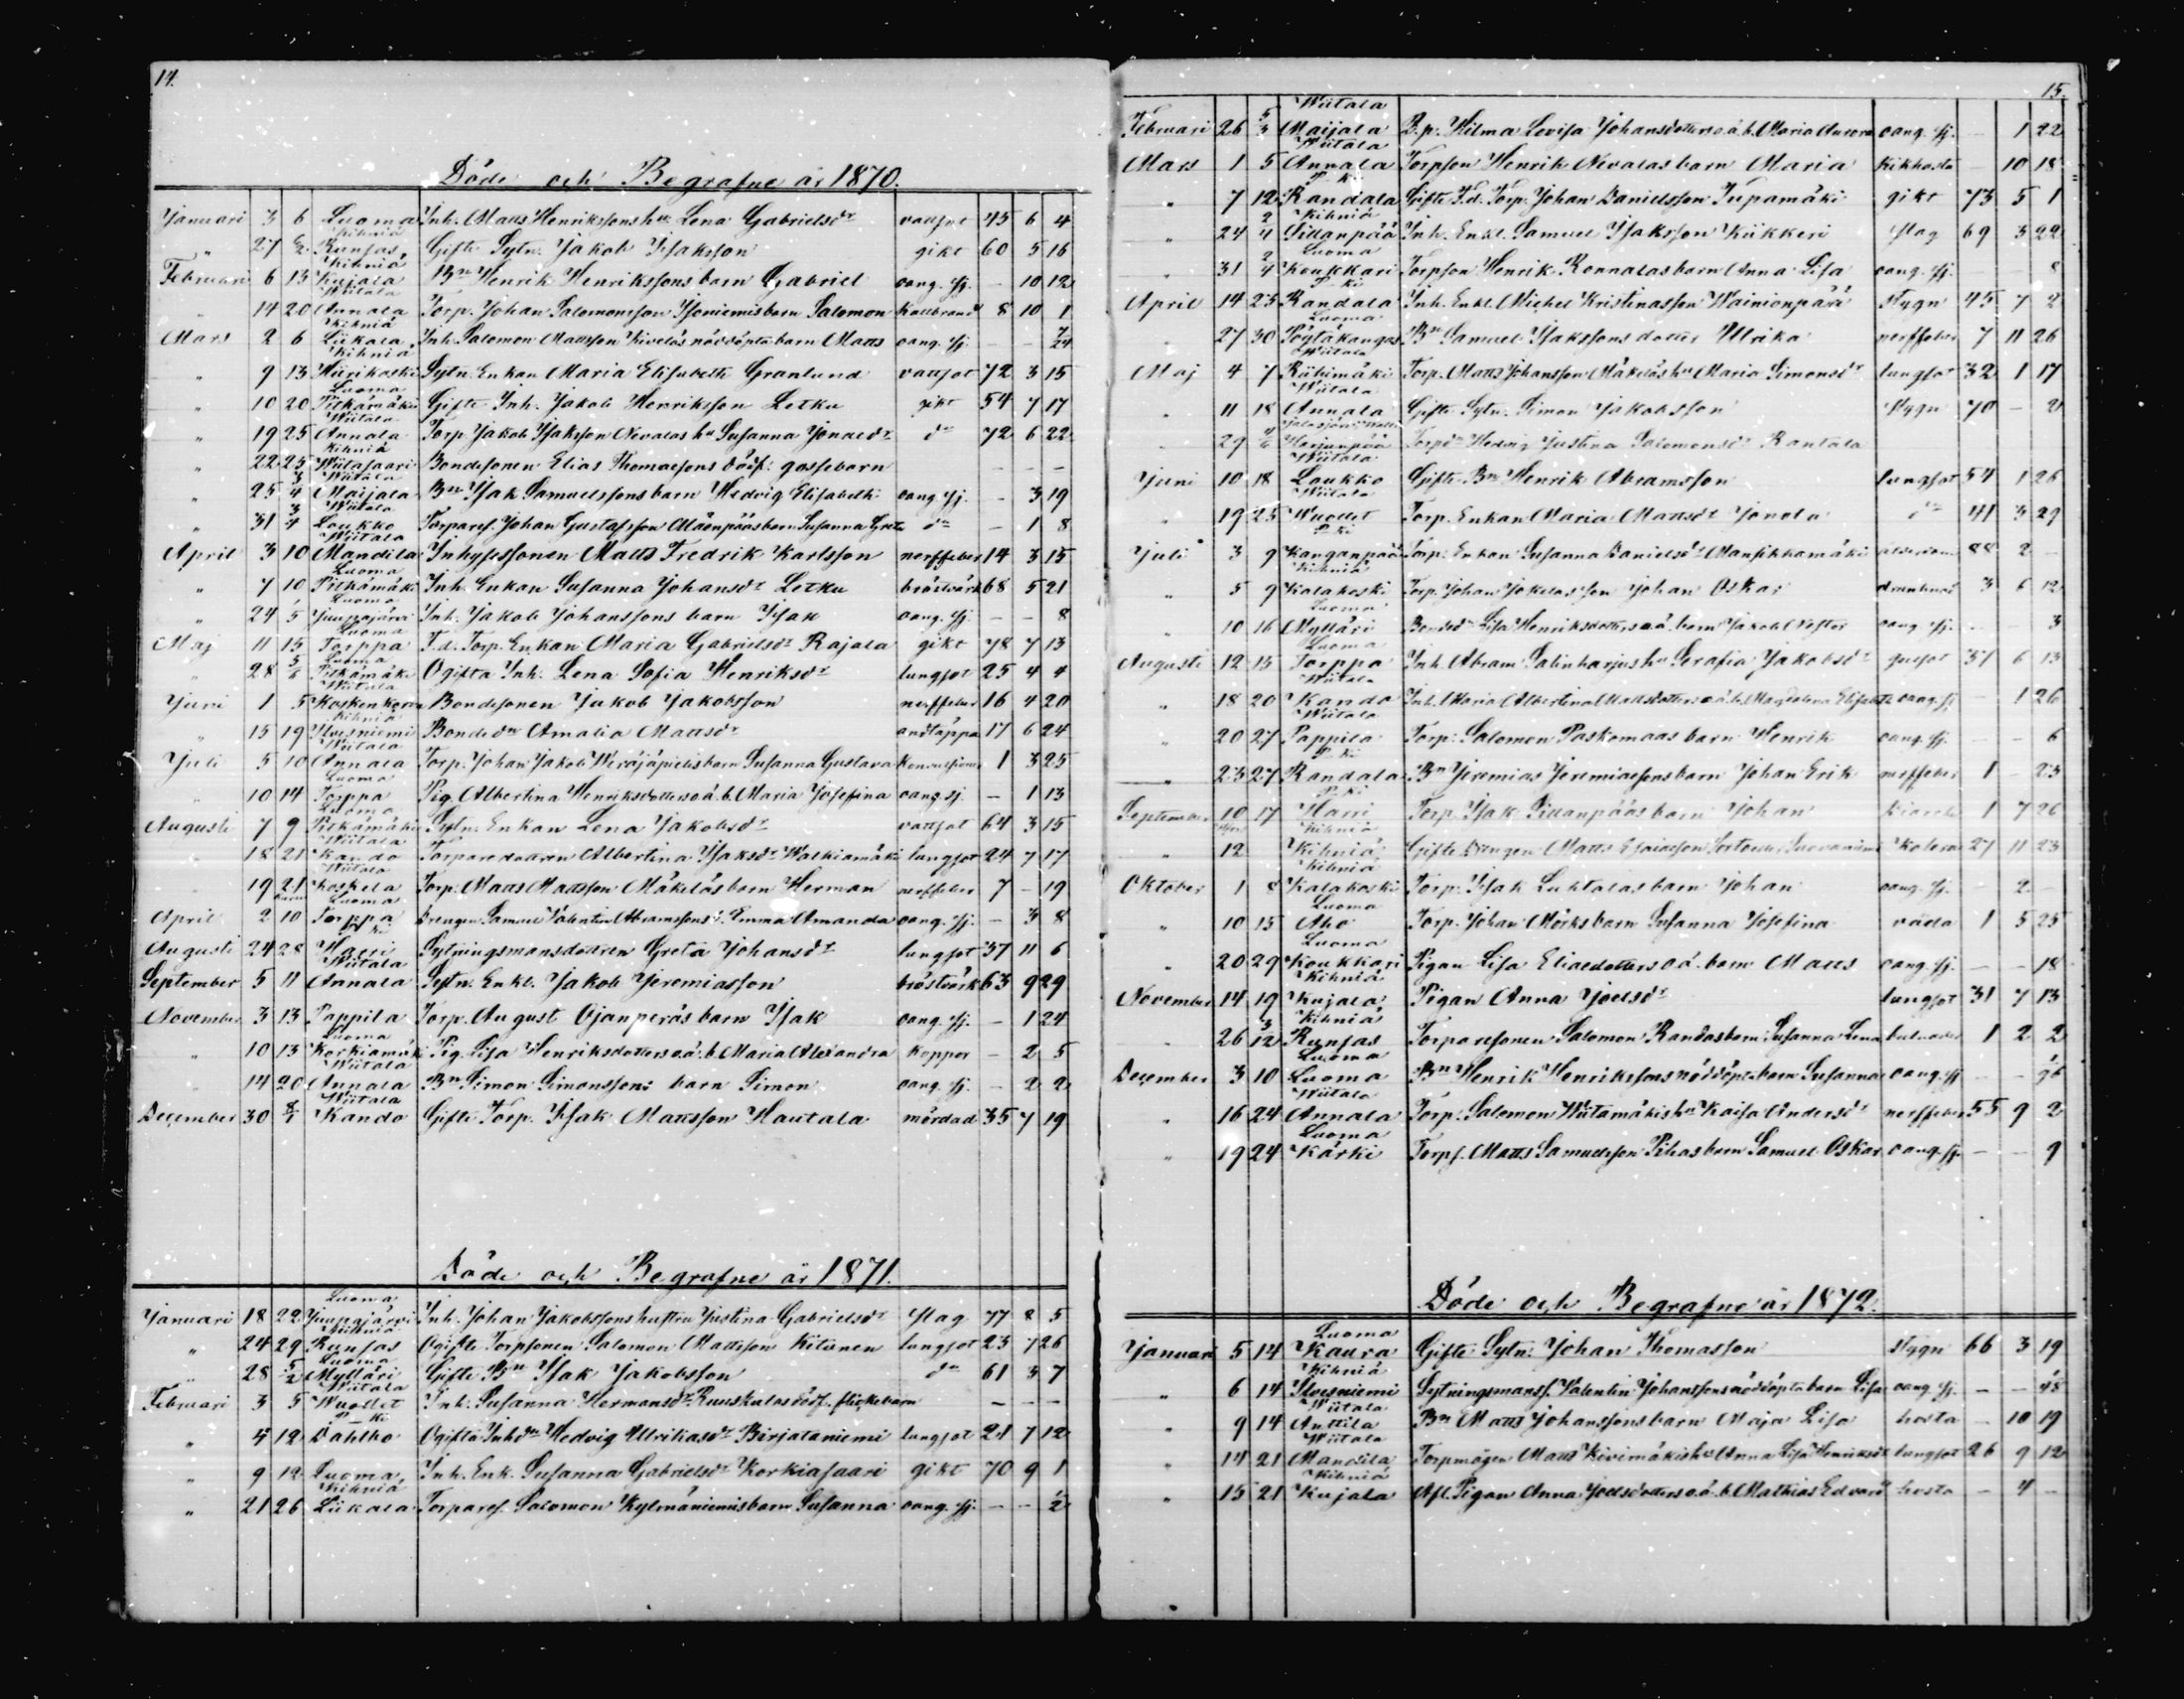 14.
Döde och Begrafne år 1870.
Januari 3 6 Luoma Inh. Matts Henrikssons hu Lena Gabrielsdr vattsot 45 6 4
" 27 6/2 Kihniä Runsas Gifte Sytn. Jakob Isaksson gikt 60 5 16
Februari 6 13 Kihniä Kujala Bn Henrik Henrikssons barn Gabriel oang. sj. - 10 12
" 14 20 Wiitala Annala Torp. Johan Salomonsson Isoniemis barn Salomon kallbrand 8 10 1
Mars 2 6 Kihniä Liikala Inh. Salomon Mattsson Kiveläs nöddöpta barn Matts oang. sj. - - 7/24
" 9 13 Kihniä Hiirikoski Sytn. Enkan Maria Elisabeth Granlund vattsot 72 3 15
" 10 20 Luoma Pitkämäki Gifte Inh. Jakob Henriksson Letku gikt 54 7 17
" 19 25 Wiitala Annala Torp. Jakob Isaksson Nevalas hu Susanna Jonaedr do 72 6 22
" 22 25 Kihniä Wiitasaari Bondesonen Elias Thomaesons dödf: gossebarn - - -
" 25 3/4 Wiitala Maijala Bn Isak Samuelssons barn Hedvig Elisabeth oang. sj. - 3 19
" 31 3/4 Wiitala Loukko Torpares. Johan Gustafsson Mäenpääs barn Susanna Greta do - 1 8
April 3 10 Wiitala Mandila Inhyssesonen Matts Fredrik Karlsson nerffeber 14 3 15
" 7 10 Luoma Pitkämäki Inh. Enkan Susanna Johansdr Letku bröstvärk 68 5 21
" 24 1/5 Luoma Juupajärvi Inh. Jakob Johanssons barn Isak oang. sj. - - 8
Maj 11 15 Luoma Torppa F.d. Torp. Enkan Maria Gabrielsdr Rajala gikt 78 7 13
" 28 5/6 Luoma Pitkämäki Ogifta Inh. Lena Sofia Henriksdr lungsot 25 4 4
Juni 1 5 Wiitala Koskenkorva Bondesonen Jakob Jakobsson nerffeber 16 4 20
" 15 19 Kihniä Ilvesniemi Bondedn Amalia Mattsdr andtäppa 17 6 24
Juli 5 10 Wiitala Annala Torp. Johan Jakob barn Susanna Gustava 1 3 25
" 10 14 Luoma Torppa Pig. Albertina Henriksdotters o.ä. b. Maria Josefina oang. sj. - 1 13
Augusti 7 9 Luoma Pitkämäki Sytn. Enkan Lena Jakobsdr vattsot 64 3 15
" 18 21 Wiitala Kando Torparedottren Albertina Isaksdr Walkiamäki lungsot 24 7 17
" 19 21 Wiitala Koskela Torp. Matts Mattsson Mäkeläs barn Herman nerffeber 7 - 19
April 2 10 Luoma Torppa Drengen Samuel Valentin Abramssons d. Emma Amanda oang. sj. - 3 8
Augusti 24 28 Harri Sytningsmansdottren Greta Johansdr lungsot 37 11 6
September 5 11 Wiitala Annala Sytn. Enkl. Jakob Jeremiasson bröstvärk 63 9 29
November 3 13 Pappila Torp. August Ojanperäs barn Isak oang. sj. - 1 24
" 10 13 Luoma Korkiamäki Pig. Lisa Henriksdotters o.ä. b. Maria Alexandra koppor - 2 5
" 14 20 Wiitala Annala Bn Simon Simonssons barn Simon oang. sj. - 2 2
December 30 8/1 Wiitala Kando Gifte Torp. Isak Mattsson Hautala mördad 35 7 19
Döde och Begrafne år 1871.
Januari 18 22 Luoma Juupajärvi Inh. Johan Jakobssons hustru Justina Gabrielsdr slag 77 8 5
" 24 29 Kihniä Runsas Ogifte Torpsonen Salomon Mattsson Kitinen lungsot 23 7 26
" 28 5/2 Luoma Mylläri Gifte Bn Isak Jakobsson do 61 3 7
Februari 3 5 Wiitala Wuollet Inh. Susanna Hermansdr Ruuskalas dödf. flickebarn - - -
" 4 12 P-ki Dahlbo Ogifta Inhdn Hedvig Ulrikasdr Birjataniemi lungsot 21 7 12
" 9 12 Luoma Inh. Enk. Susanna Gabrielsdr Korkiasaari gikt 70 9 1
" 21 26 Kihniä Liikala Torpares. Salomon Kylmäniemis barn Susanna oang. sj. - - 1/2
15.
Februari 26 5/3 Wiitala Maijala B.p. Hilma Lovisa Johansdotters o.ä. b. Maria Aurora oang. sj. - 1 22
Mars 1 5 Wiitala Annala Torpson Henrik Nevalas barn Maria kikhosta - 10 18
" 7 12 P-ki Randala Gifte F.d. Torp. Johan Danielsson Jupamäki gikt 73 5 1
" 24 2/4 Kihniä Sidanpää Inh. Enkl. Samuel Isaksson Kiikkeri slag 69 3 22
" 31 2/4 Luoma Koukkari Torpson Henrik Rannalas barn Anna Lisa oang. sj. - - 8
April 14 23 P-ki Randala Inh. Enkl. Michel Kristinasson Wainionpää stygn 45 7 2
" 27 30 Luoma Pöytäkangas Bn Samuel Isakssons dotter Ulrika nerffeber 7 11 26
Maj 4 7 Wiitala Riihimäki Torp. Matts Johansson Mäkeläs hu Maria Simonsdr lungsot 32 1 17
" 11 18 Wiitala Annala Gifte Sytn. Simon Jakobsson stygn 70 - 2
" 29 4/6 Harjunpää Torpdn Hedvig Justina Salomonsdr Rantala
Juni 10 18 Wiitala Loukko Gifte Bn Henrik Abramsson lungsot 54 1 26
" 19 25 Wiitala Wuollet Torp. Enkan Maria Mattsdr Jonela do 41 3 29
Juli 3 9 P-ki Kanganpää Torp. Enkan Susanna Danielsdr Mansikkamäki ålderdom 88 2 -
" 5 9 Kihniä Kalakoski Torp. Johan Jokelas son Johan Oskar drunknad 3 6 12
" 10 16 Luoma Mylläri Bondedn Lisa Henriksdotters o.ä. barn Jakob Nestor oang. sj. - - 3
Augusti 12 15 Luoma Torppa Inh. Abram Salinharjus hu Serafia Jakobsdr 37 6 13
" 18 20 Wiitala Kando Inh. Maria Albertina Mattsdotters o.ä. b. Magdalena Elisabeth oang. sj. - 1 26
" 20 27 Wiitala Pappila Torp. Salomon Paskomaas barn Henrik oang. sj. - - 6
" 23 27 P-ki Randala Bn Jeremias Jeremiaesons barn Johan Erik nerffeber 1 - 23
September 10 17 P-ki Harri Torp. Isak Sidanpääs barn Johan 1 7 26
" 12 Kihniä Kihniä Gifte Drengen Matts Esaiasson Kolera 27 11 23
Oktober 1 8 Kihniä Kalakoski Torp. Isak Luhtalas barn Johan oang. sj. - 2 -
" 10 15 Luoma Aho Torp. Johan Mörks barn Susanna Josefina våda 1 5 25
" 20 29 Luoma Koukkari Pigan Lisa Eliaedotters o.ä. barn Matts oang. sj. - - 18
November 14 19 Kihniä Kujala Pigan Anna Joelsdr lungsot 31 7 13
" 26 3/12 Kihniä Runsas Torparesonen Salomon Randas barn Susanna Lena 1 2 2
December 3 10 Luoma Luoma Bn Henrik Henrikssons nöddöpta barn Susanna oang. sj. - -
" 16 24 Wiitala Annala Torp. Salomon Wiitamäkis hu Kaisa Andersdr nerffeber 55 9 2
" 19 24 Luoma Kärki Torps. Matts Samuelsson Pihas barn Samuel Oskar oang. sj. - - 9
Döde och Begrafne år 1872.
Januari 5 14 Luoma Kaura Gifte Sytn. Johan Thomasson stygn 66 3 19
" 6 14 Kihniä Ilvesniemi Sytningsmanss. Valentin Johanssons nöddöpta barn Lisa oang. sj. - - 1/48
" 9 14 Wiitala Anttila Bn Matts Johanssons barn Maja Lisa hosta - 10 19
" 14 21 Wiitala Mandila Torpmågen Matts Kivimäkis hu Anna Lisa Henriksdr lungsot 26 9 12
" 15 21 Kihniä Kujala Afl. Pigan Anna Joelsdotters o.ä. b. Mathias Edvard hosta - 4 -